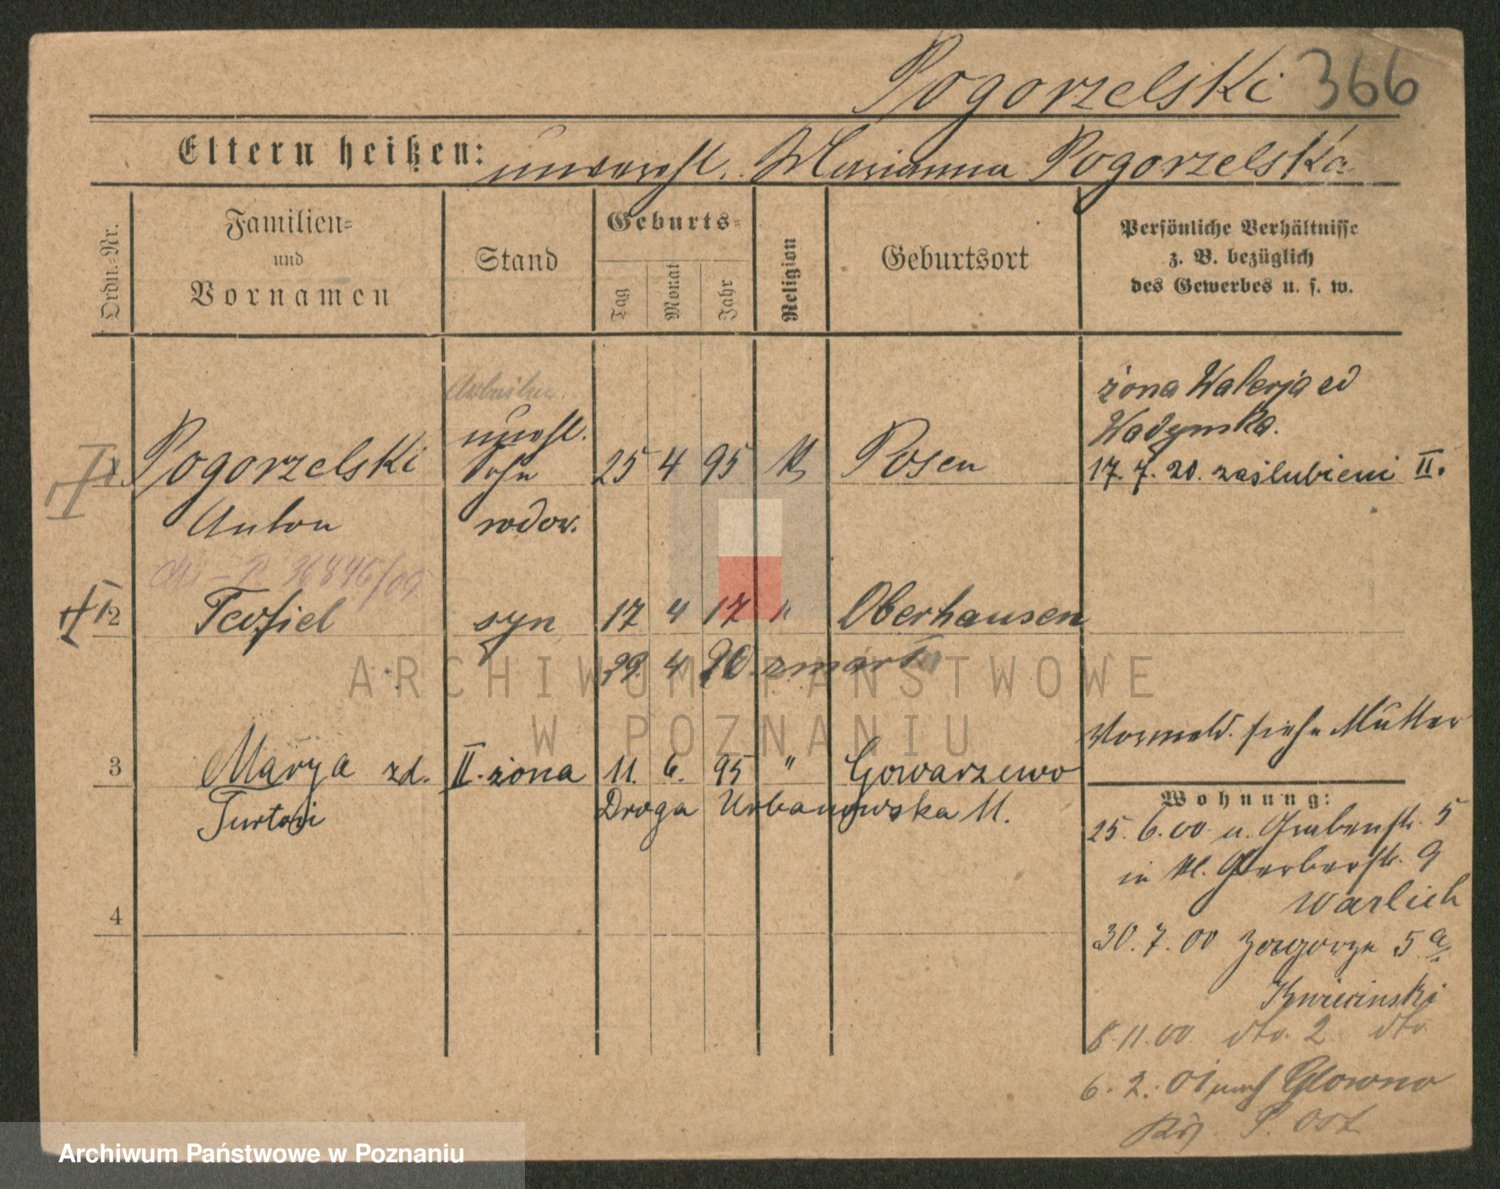 Pogorzelski 366
Eltern heißen: unverehl. Marianna Pogorzelska
Ordn.-Nr.
Familien-
und
Vornamen
Stand
Geburts-
Tag
Monat
Jahr
Religion
Geburtsort
Persönliche Verhältnisse
z. B. bezüglich
des Gewerbes u. s. w.
żona Walerja
17. 7. 20. zaślubieni II.
Pogorzelski Sohn 25 4 95 K Posen
Anton
2 Teofiel syn 17 4 17 " Oberhausen
29. 4 20. zmarł
Vormeld. siehe Mutter
3 Marya zd. II. żona 11. 6. 95 " Gowarzewo
Droga Urbanowska 11.
Wohnung:
25. 6. 00 u. Grabenstr. 5
in Kl. Gerberstr. 9
Warlich
4
30. 7. 00 Zagorze 5 a
Kwicinski
8. 11. 00 dto. 2 dto
6. 2. 01 nach Glowno
P. Ost
ARCHIWUM PAŃSTWOWE
W POZNANIU
Archiwum Państwowe w Poznaniu